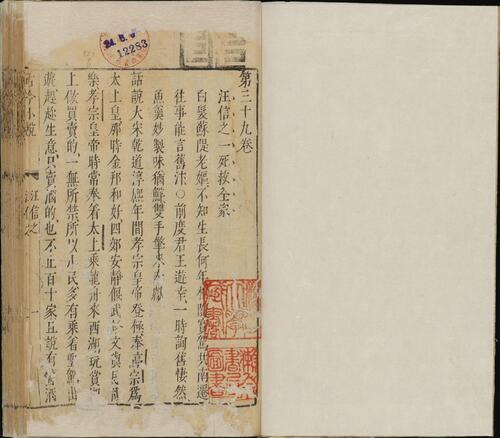 12283
第三十九卷
汪信之一死救全家
白髮蘇隄老嫗不知生長何年寶駕共南遷
往事能言舊汴○前度君王遊幸一時詢舊悽然
魚羹妙製味猶鮮雙手擎來獻
話說大宋乾道淳熈年間孝宗皇帝登極奉高宗爲
太上皇那時金邦和好四郊安靜偃武修文與民同
樂孝宗皇帝時常奉着太上乘龍舟來西湖玩賞
上做買賣的一無所禁所以小民多有乘着聖駕出
遊趕趁生意只賣酒的也不止百十家且說有箇酒
古今小說
汪信之
一